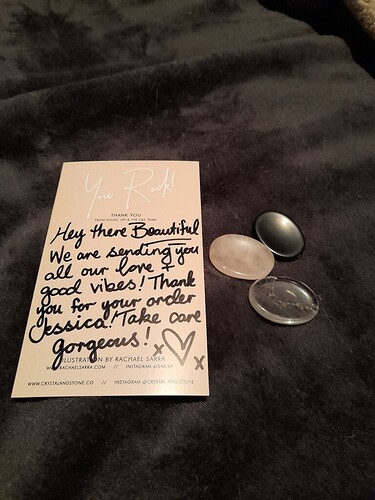 You Rock!
THANK YOU
Hey there Beautiful
We are sending you
all our love +
good vibes! Thank
you for your order
Jessica! Take care
gorgeous!
ILLUSTRATION BY RACHAEL SARRA
WWW.CRYSTALANDSTONE.CO // INSTAGRAM @CRYSTALANDSTONE